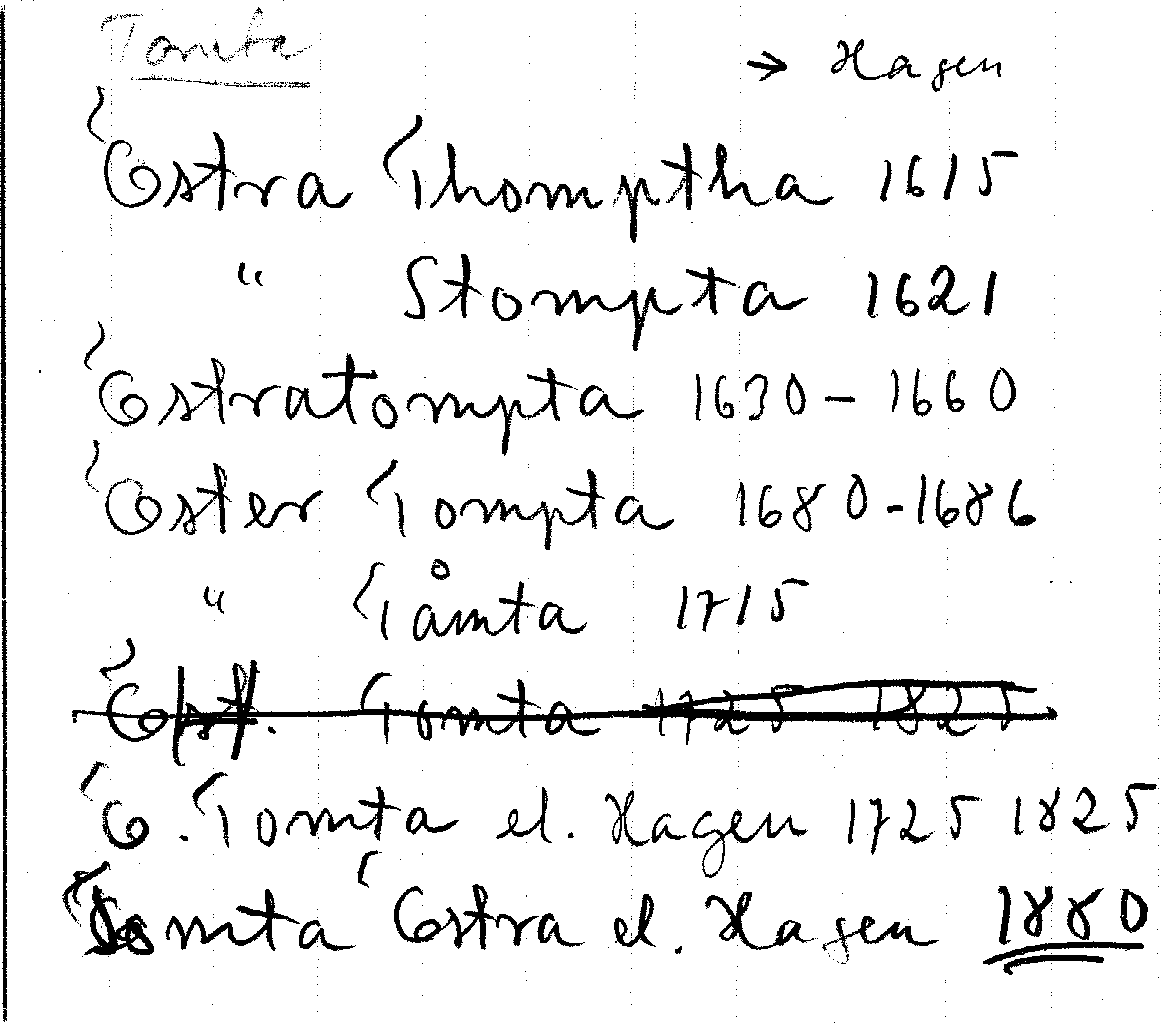 Tomta → Hagen
Östra Thomptha 1615
" Stompta 1621
Östratompta 1630 – 1660
Öster Tompta 1680 - 1686
" Tåmta 1715
Öst. Tomta 1725 1825
Ö. Tomta el. Hagen 1725 1825
Tomta Östra el. Hagen 1880